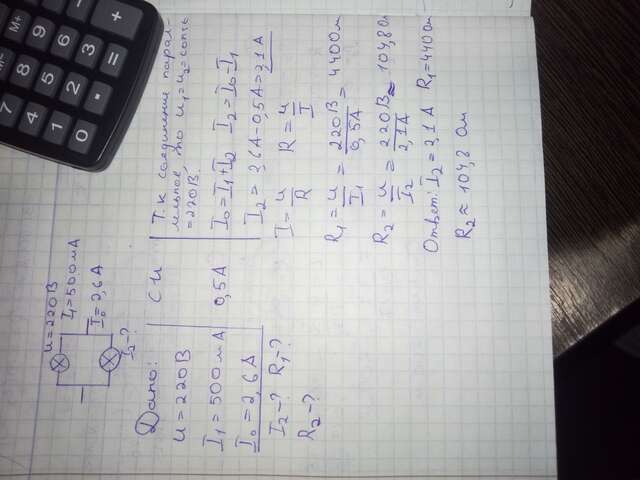 U=220В
I₁=500мА
I₀=2,6А
I₂-?
Дано:
U=220В
I₁=500мА
I₀=2,6А
I₂-? R₁-?
R₂-?
СИ
0,5А
Т.к соединение парал-
лельное, то U₁=U₂=const
=220В,
I₀=I₁+I₂ I₂=I₀-I₁
I₂=2,6А-0,5А=2,1А
I=U/R R=U/I
R₁=U/I₁=220В/0,5А=440Ом
R₂=U/I₂=220В/2,1А≈104,8Ом
Ответ: I₂=2,1А R₁=440Ом
R₂≈104,8 Ом
M+
M-
9
8
7
6
5
4
3
2
1
0
.
+
-
=